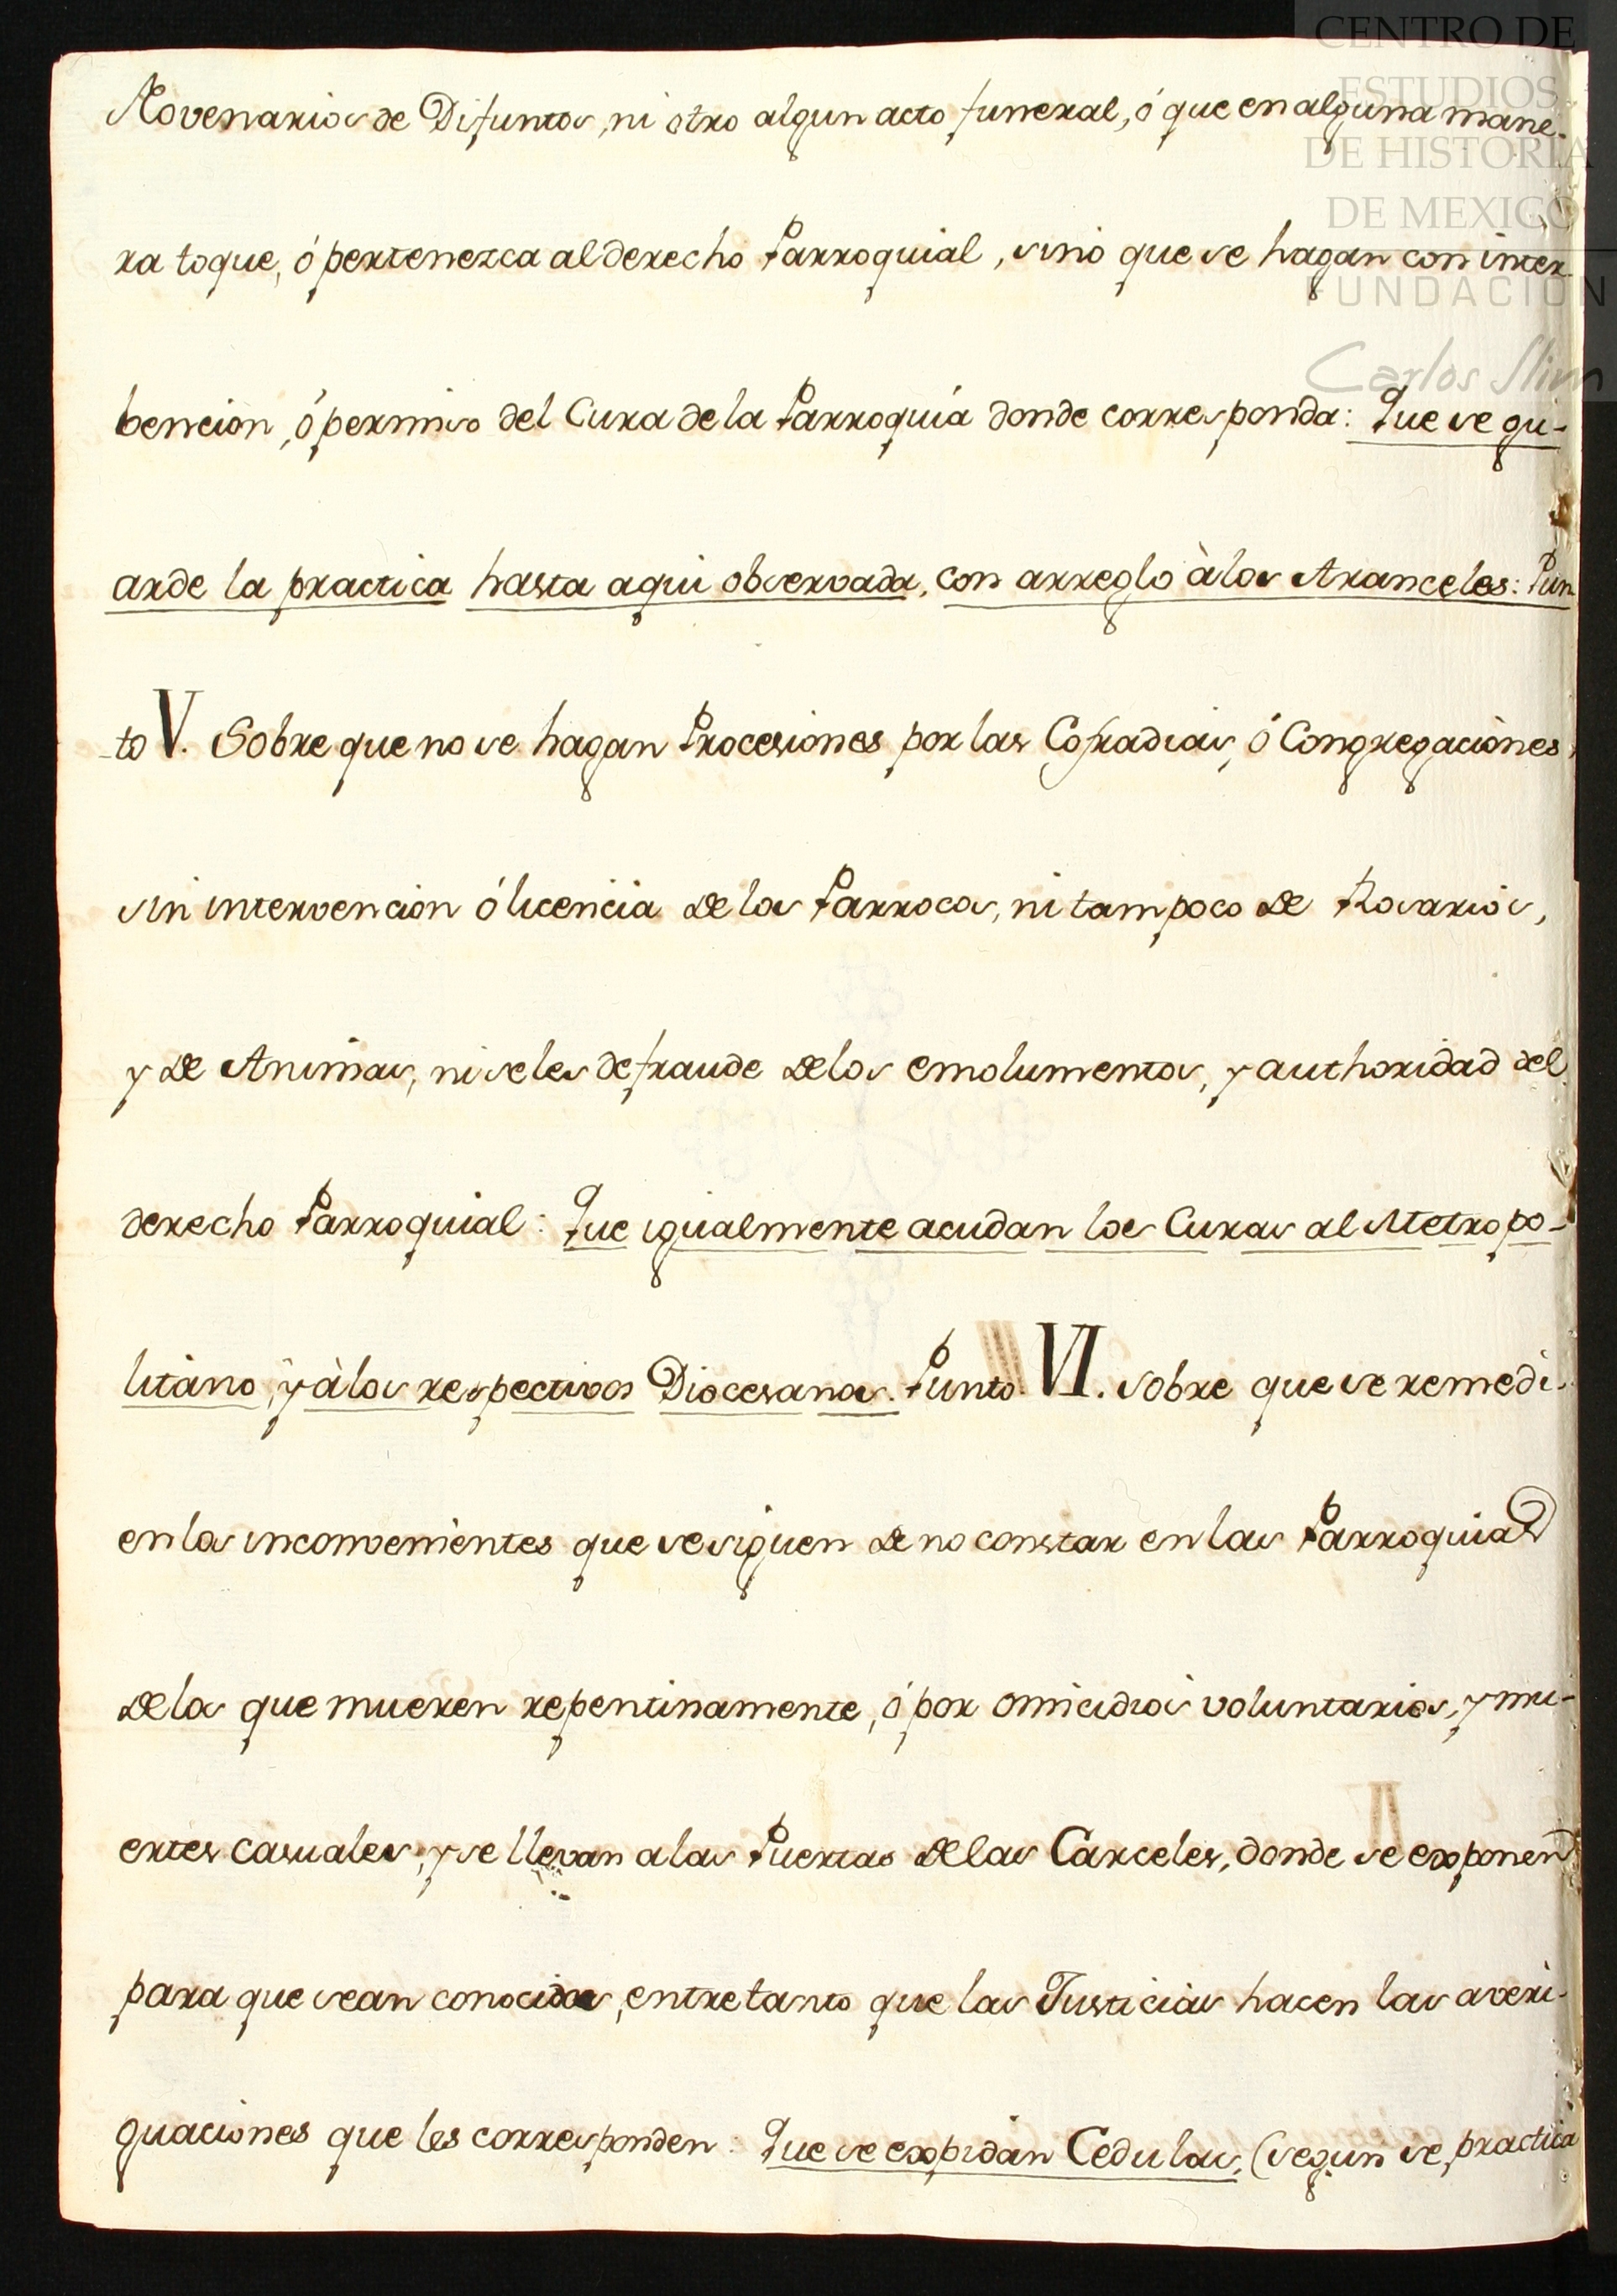 Novenarios de Difuntos, ni otro algun acto funeral, ó que en alguna mane-
ra toque, ó pertenezca al derecho Parroquial, sino que se hagan con inter-
bencion, ó permiso del Cura de la Parroquia donde corresponda: Que se gu-
arde la practica hasta aqui observada, con arreglo à los Aranceles: Pun
-to V. Sobre que no se hagan Procesiones por las Cofradias, ó Congregaciònes,
sin intervencion ó licencia de los Parrocos, ni tampoco de Rosarios,
y de Animas, ni se les defraude de los emolumentos, y authoridad del
derecho Parroquial: Que igualmente acudan los Curas al Metropo-
litano, y à los respectivos Diocesanos. Punto VI. Sobre que se remedi-
en los inconvenientes que se siguen de no constar en las Parroquias
de los que mueren repentinamente, ó por omicidios voluntarios, y mu-
ertes casuales, y se llevan a las Puertas de las Carceles, donde se exponen
para que sean conocidos, entretanto que las Justicias hacen las averi-
guaciones que les corresponden: Que se expidan Cedulas, (segun se practica
CENTRO DE
ESTUDIOS
DE HISTORIA
DE MEXICO
FUNDACIÓN
Carlos Slim